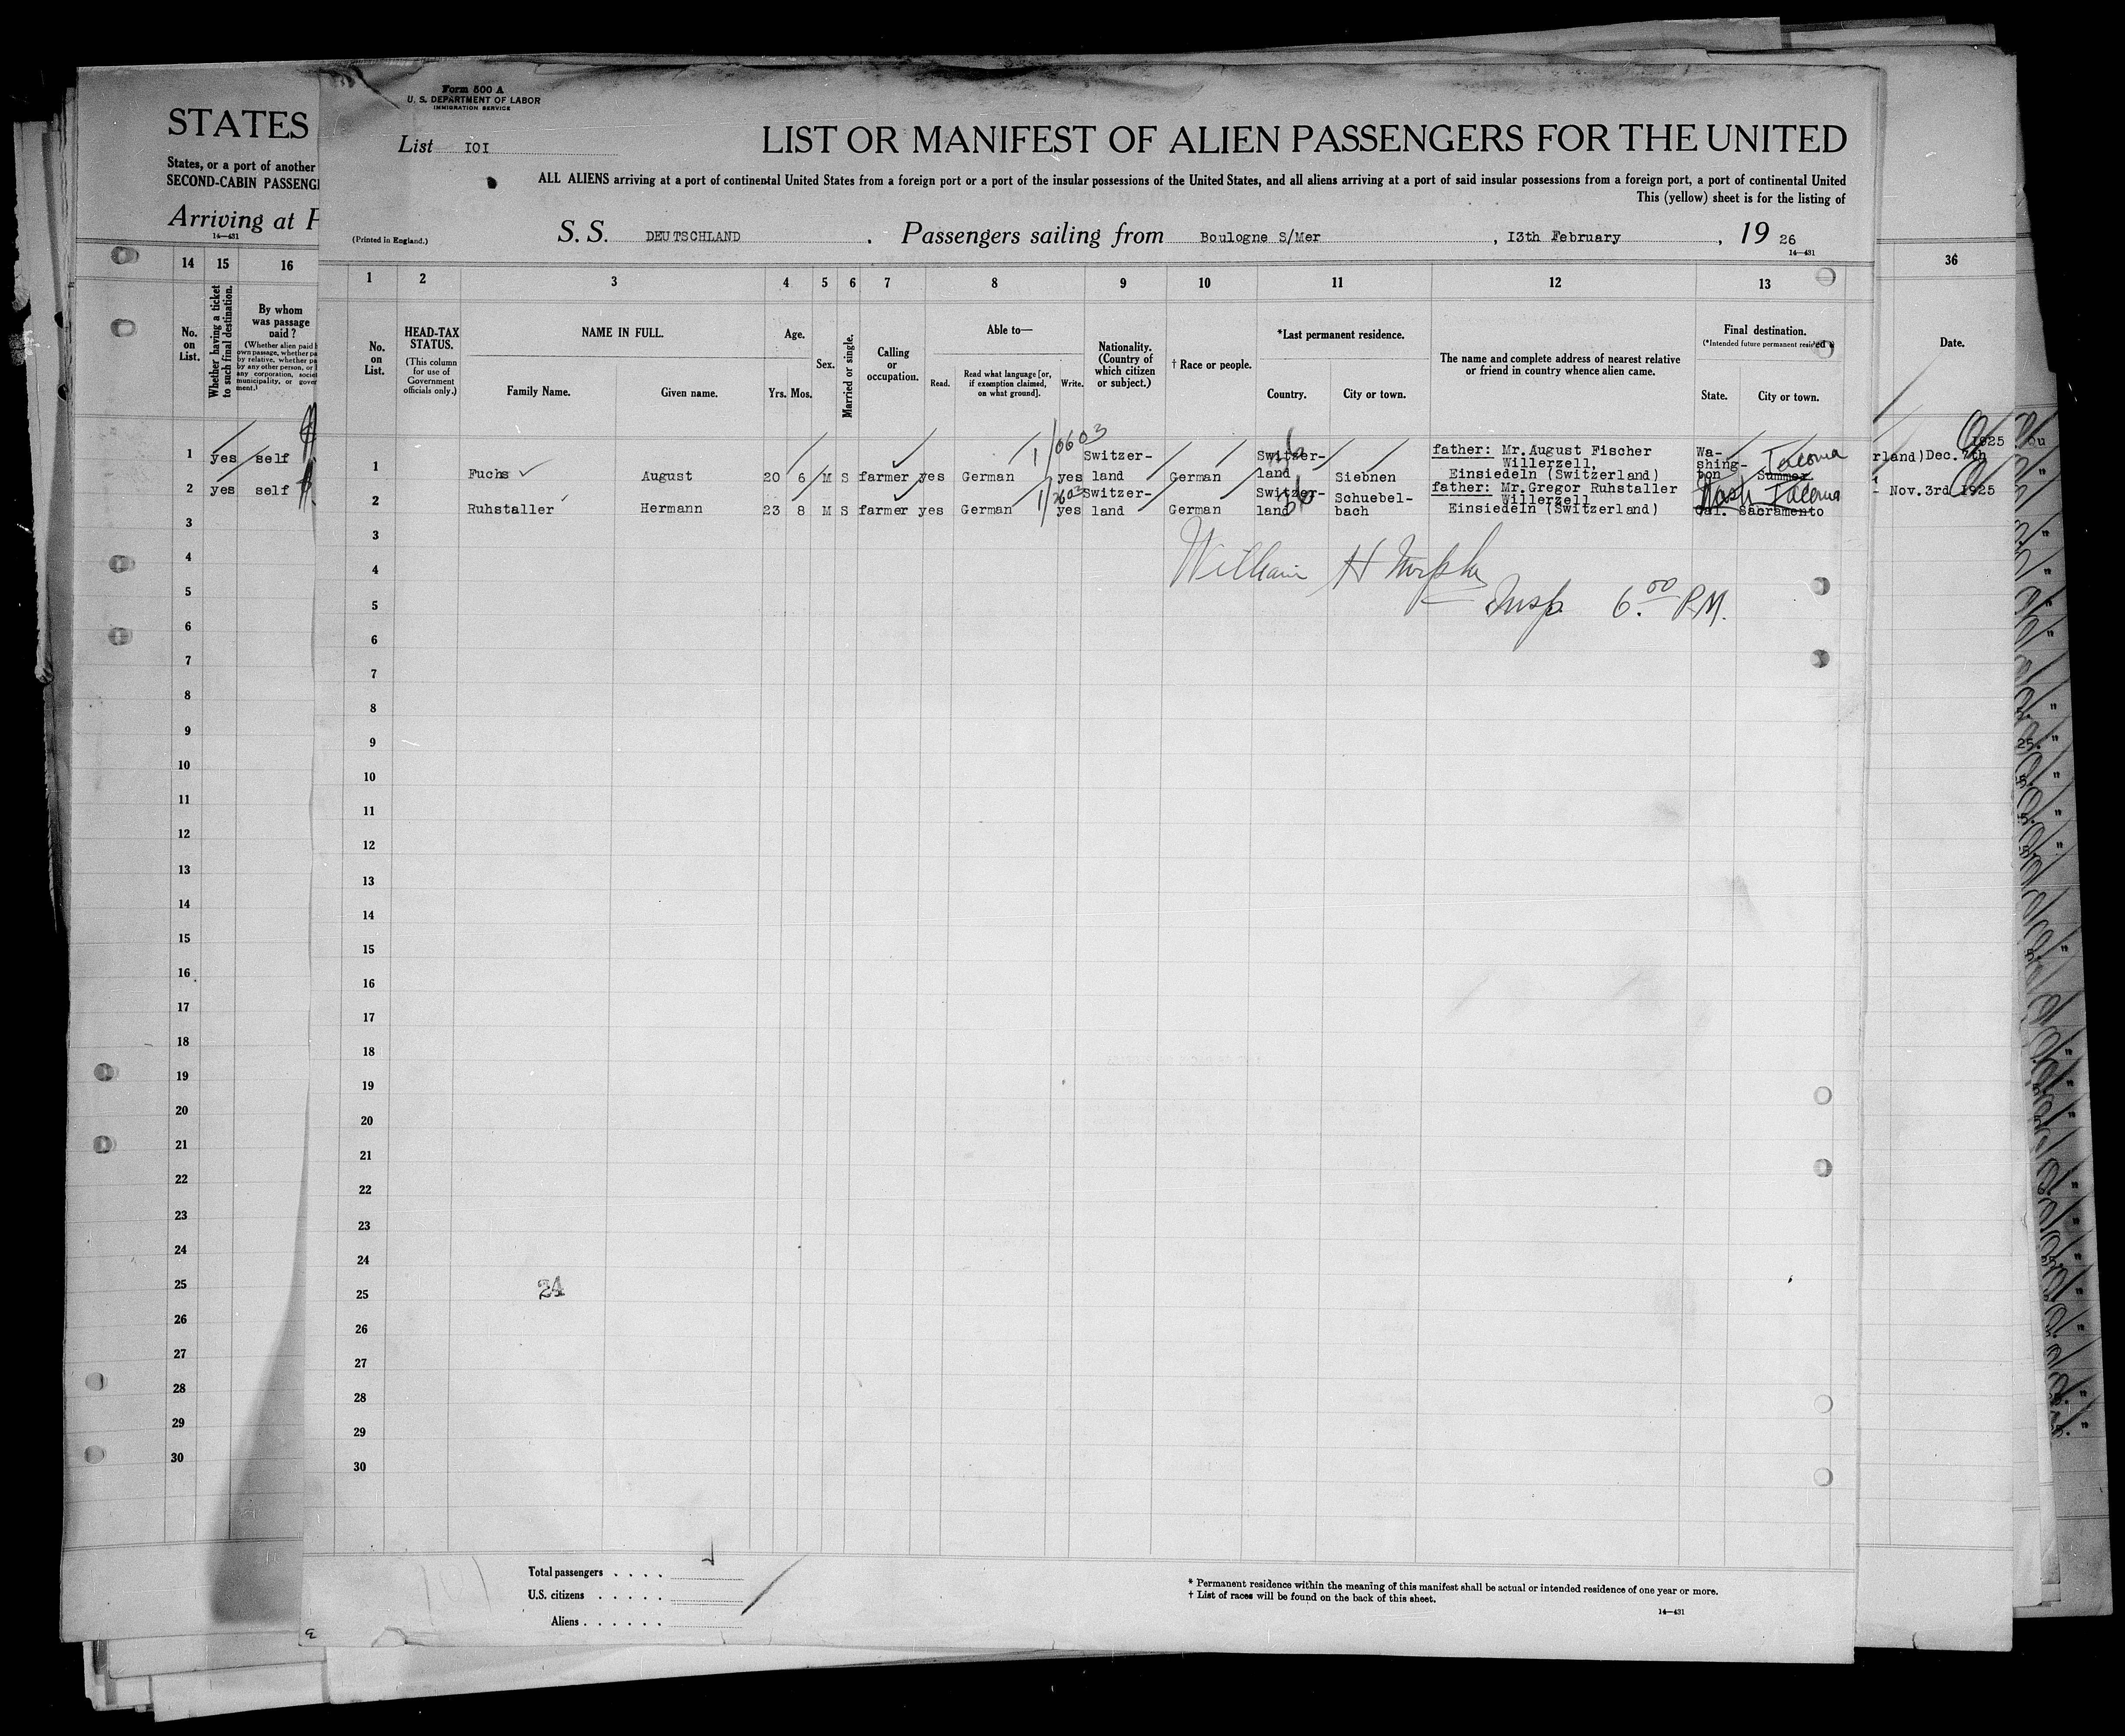 STATES
States, or a port of another
SECOND-CABIN PASSENG
Arriving at P
14—431
14 15 16
No. on List.
Whether having a ticket to such final destination.
By whom was passage paid?
(Whether alien paid
own passage, whether pa
by relative, whether pa
by any other person, or
any corporation, societ
municipality, or gover
ment.)
1 yes self
2 yes self
3
4
5
6
7
8
9
10
11
12
13
14
15
16
17
18
19
20
21
22
23
24
25
26
27
28
29
30
Form 500 A
U. S. DEPARTMENT OF LABOR
IMMIGRATION SERVICE
List IOI
LIST OR MANIFEST OF ALIEN PASSENGERS FOR THE UNITED
ALL ALIENS arriving at a port of continental United States from a foreign port or a port of the insular possessions of the United States, and all aliens arriving at a port of said insular possessions from a foreign port, a port of continental United
This (yellow) sheet is for the listing of
(Printed in England.)
S. S. DEUTSCHLAND . Passengers sailing from Boulogne S/Mer , I3th February , 19 26
14—431
1 2 3 4 5 6 7 8 9 10 11 12 13
No. on List.
HEAD-TAX STATUS.
(This column for use of Government officials only.)
NAME IN FULL.
Family Name. Given name.
Age.
Yrs. Mos.
Sex.
Married or single.
Calling or occupation.
Able to—
Read. Read what language [or, if exemption claimed, on what ground]. Write.
Nationality. (Country of which citizen or subject.)
† Race or people.
*Last permanent residence.
Country. City or town.
The name and complete address of nearest relative or friend in country whence alien came.
Final destination.
(*Intended future permanent residence
State. City or town.
1 Fuchs August 20 6 M S farmer yes German yes Switzer-land German Switzer-land Siebnen father: Mr.August Fischer Willerzell, Einsiedeln (Switzerland) Wa-shing-ton Sumner Tacoma
2 Ruhstaller Hermann 23 8 M S farmer yes German yes Switzer-land German Switzer-land Schuebel-bach father: Mr.Gregor Ruhstaller Willerzell Einsiedeln (Switzerland) Cal. Sacramento Wash Tacoma
William H Murphy
Insp. 6.00 P.M.
3
4
5
6
7
8
9
10
11
12
13
14
15
16
17
18
19
20
21
22
23
24
25
26
27
28
29
30
24
Total passengers . . . .
U.S. citizens . . . . .
Aliens . . . . . .
* Permanent residence within the meaning of this manifest shall be actual or intended residence of one year or more.
† List of races will be found on the back of this sheet.
14—431
36
Date.
1925
rland)Dec.7th
Nov.3rd 1925